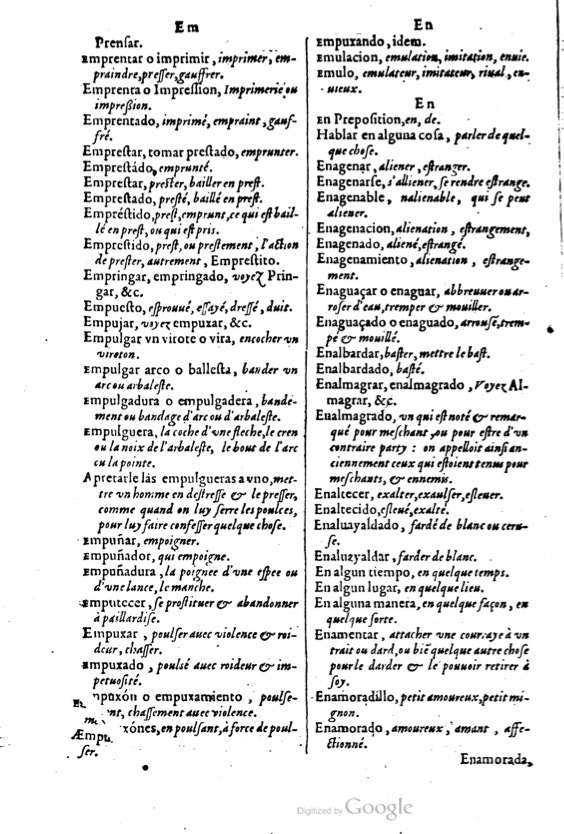 Em
Prenſar.
Emprentar o imprimir, imprimer, em-
praindre, preſſer, gauffrer.
Emprenta o Impreſſion, Imprimerie ou
impreßion.
Emprentado, imprimé, empraint, gauf-
fré.
Empreſtar, tomar preſtado, emprunter.
Empreſtádo, emprunté.
Empreſtar, preſter, bailler en preſt.
Empreſtado, preſté, baillé en preſt.
Empréſtido, preſt, emprunt, ce qui eſt bail-
lé en preſt, ou qui eſt pris.
Empreſtido, preſt, ou preſtement, l'action
de preſter, autrement, Empreſtito.
Empringar, empringado, voyez Prin-
gar, &c.
Empueſto, eſprouué, eſſayé, dreſſé, duit.
Empujar, voyez empuxar, &c.
Empulgar vn virote o vira, encocher vn
vireton.
Empulgar arco o balleſta, bander vn
arc ou arbaleſte.
Empulgadura o empulgadera, bande-
ment ou bandage d'arc ou d'arbaleſte.
Empulguera, la coche d'vne fleche, le cren
ou la noix de l'arbaleſte, le bout de l'arc
cu la pointe.
Apretarle las empulgueras a vno, met-
tre vn homme en deſtreſſe & le preſſer,
comme quand on luy ſerre les poulces,
pour luy faire confeſſer quelque choſe.
Empuñar, empoigner.
Empuñador, qui empoigne.
Empuñadura, la poignee d'vne eſpee ou
d'vne lance, le manche.
Emputecer, ſe proſtituer & abandonner
à paillardiſe.
Empuxar, poulſer auec violence & roi-
deur, chaſſer.
Empuxado, poulsé auec roideur & im-
petuoſité.
Em puxón o empuxamiento, poulſe-
m nt, chaſſement auec violence.
Æmpu xónes, en poulſant, à force de poul-
ſer.
En
Empuxando, idem.
Emulacion, emulation, imitation, enuie.
Emulo, emulateur, imitateur, riual, en-
uieux.
En
En Prepoſition, en, de.
Hablar en alguna coſa, parler de quel-
que choſe.
Enagenar, aliener, eſtranger.
Enagenarſe, s'alliener, ſe rendre eſtrange.
Enagenable, nalienable, qui ſe peut
aliener.
Enagenacion, alienation, eſtrangement,
Enagenado, aliené, eſtrangé.
Enagenamiento, alienation, eſtrange-
ment.
Enaguaçar o enaguar, abbreuuer ou ar-
roſer d'eau, tremper & mouiller.
Enaguaçado o enaguado, arrousé, trem-
pé & mouillé.
Enalbardar, baſter, mettre le baſt.
Enalbardado, baſté.
Enalmagrar, enalmagrado, Voyez Al-
magrar, &c.
Enalmagrado, vn qui eſt noté & remar-
qué pour meſchant, ou pour eſtre d'vn
contraire party : on appelloit ainſi an-
ciennement ceux qui eſtoient tenus pour
meſchants, & ennemis.
Enaltecer, exalter, exaulſer, eſleuer.
Enaltecido, eſleué, exalté.
Enaluayaldado, fardé de blanc ou ceru-
ſe.
Enaluzyaldar, farder de blanc.
En algun tiempo, en quelque temps.
En algun lugar, en quelque lieu.
En alguna manera, en quelque façon, en
quelque ſorte.
Enamentar, attacher vne courraye à vn
trait ou dard, ou bié quelque autre choſe
pour le darder & le pouuoir retirer à
ſoy.
Enamoradillo, petit amoureux, petit mi-
gnon.
Enamorado, amoureux, amant, affe-
ctionné.
Enamorada,
Digitized by Google